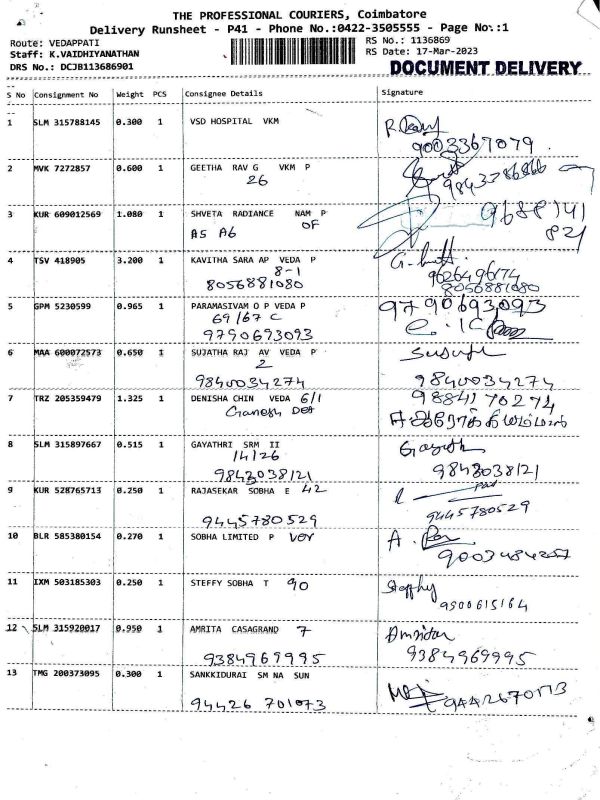 THE PROFESSIONAL COURIERS, Coimbatore
Delivery Runsheet - P41 - Phone No.:0422-3505555 - Page No.:1
Route: VEDAPPATI
RS No.: 1136869
Staff: K.VAIDHIYANATHAN
RS Date: 17-Mar-2023
DRS No.: DCJB113686901
DOCUMENT DELIVERY
S No Consignment No Weight PCS Consignee Details Signature
1 SLM 315788145 0.300 1 VSD HOSPITAL VKM
9003367079
2 MVK 7272857 0.600 1 GEETHA RAV G VKM P
26
9843786866
3 KUR 609012569 1.080 1 SHVETA RADIANCE NAM P
A5 A6 OF
9688141
821
4 TSV 418905 3.200 1 KAVITHA SARA AP VEDA P
8-1
8056881080
9626496174
8056881080
5 GPM 5230599 0.965 1 PARAMASIVAM O P VEDA P
69/67 C
9790693093
9790693093
6 MAA 600072573 0.650 1 SUJATHA RAJ AV VEDA P
2
9840034274
9840034274
7 TRZ 205359479 1.325 1 DENISHA CHIN VEDA 6/1
Ganesh
9884170274
8 SLM 315897667 0.515 1 GAYATHRI SRM II
14/26
9843038121
9843038121
9 KUR 528765713 0.250 1 RAJASEKAR SOBHA E 42
9445780529
9445780529
10 BLR 585380154 0.270 1 SOBHA LIMITED P
A.
11 IXM 503185303 0.250 1 STEFFY SOBHA T 90
Steffy
9500615164
12 SLM 315920017 0.950 1 AMRITA CASAGRAND 7
9384969995
9384969995
13 TMG 200373095 0.300 1 SANKKIDURAI SM NA SUN
94426 701073